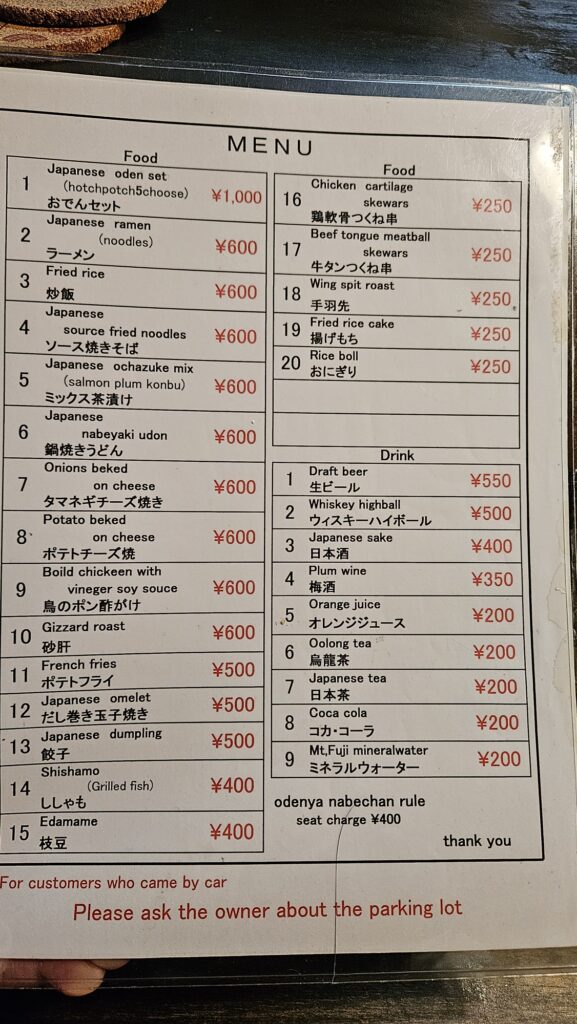 MENU
Food
1 Japanese oden set
(hotchpotch5choose) ¥1,000
おでんセット
2 Japanese ramen
(noodles) ¥600
ラーメン
3 Fried rice ¥600
炒飯
4 Japanese
source fried noodles ¥600
ソース焼きそば
5 Japanese ochazuke mix
(salmon plum konbu) ¥600
ミックス茶漬け
6 Japanese
nabeyaki udon ¥600
鍋焼きうどん
7 Onions beked
on cheese ¥600
タマネギチーズ焼き
8 Potato beked
on cheese ¥600
ポテトチーズ焼
9 Boild chickeen with
vineger soy souce ¥600
鳥のポン酢がけ
10 Gizzard roast ¥600
砂肝
11 French fries ¥500
ポテトフライ
12 Japanese omelet ¥500
だし巻き玉子焼き
13 Japanese dumpling ¥500
餃子
14 Shishamo
(Grilled fish) ¥400
ししゃも
15 Edamame ¥400
枝豆
Food
16 Chicken cartilage
skewars ¥250
鶏軟骨つくね串
17 Beef tongue meatball
skewars ¥250
牛タンつくね串
18 Wing spit roast ¥250
手羽先
19 Fried rice cake ¥250
揚げもち
20 Rice boll ¥250
おにぎり
Drink
1 Draft beer ¥550
生ビール
2 Whiskey highball ¥500
ウィスキーハイボール
3 Japanese sake ¥400
日本酒
4 Plum wine ¥350
梅酒
5 Orange juice ¥200
オレンジジュース
6 Oolong tea ¥200
烏龍茶
7 Japanese tea ¥200
日本茶
8 Coca cola ¥200
コカ・コーラ
9 Mt,Fuji mineralwater ¥200
ミネラルウォーター
odenya nabechan rule
seat charge ¥400
thank you
For customers who came by car
Please ask the owner about the parking lot